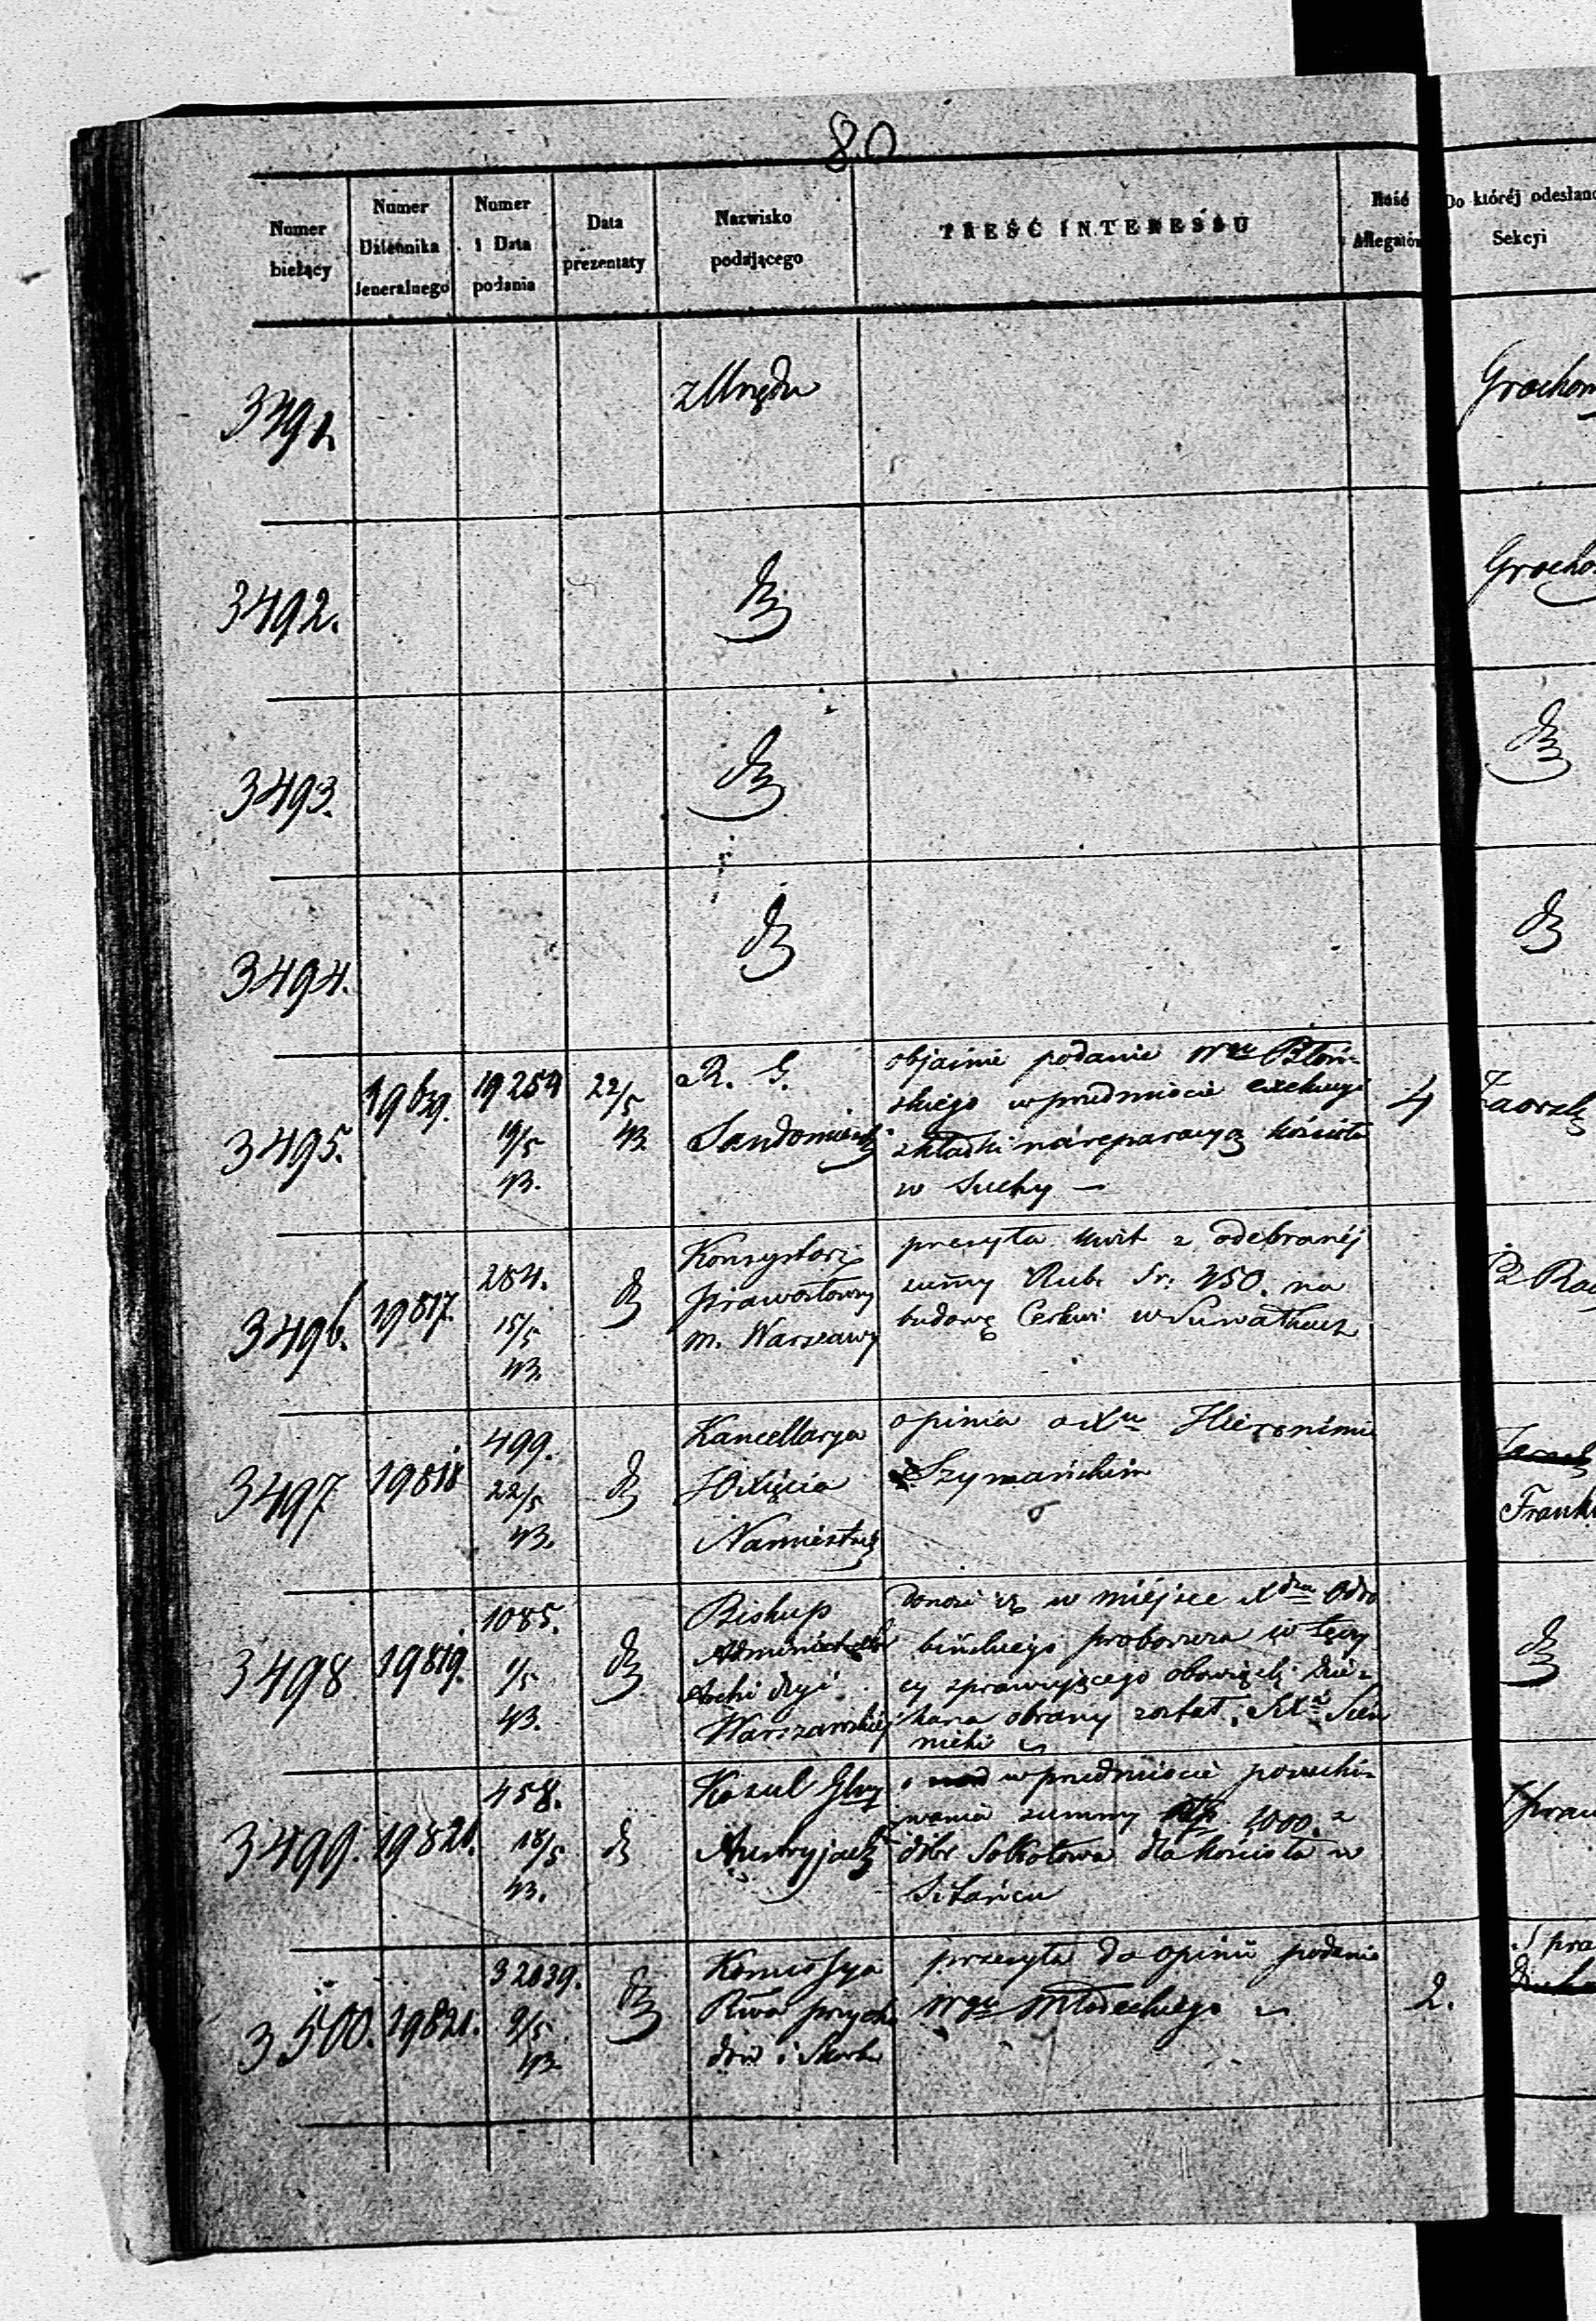 80
Numer bieżący
Numer Dziennika Jeneralnego
Numer i Data podania
Data prezentaty
Nazwisko podającego
TREŚĆ INTERESSU
Ilość Allegatów
Do któréj odesłano Sekcyi
3491.
z Urzędu
Grochow
3492.
dto
Grocho
3493.
dto
dto
3494.
dto
dto
3495.
19639.
19254
19/5
43.
22/5
43.
R. G.
Sandomierski
objaśnia podanie Wgo Błoń-
skiego w przedmiocie exekucyi
składki na reparacyą kościoła
w Suchy —
4
3496.
19817.
254.
15/5
43.
dto
Konsystorz
prawosławny
m. Warszawy
przesyła kwit z odebranéj
summy Rub. Sr. 450. na
budowę Cerkwi w Suwałkach
3497
19818
499.
22/5
43.
dto
Kancellarya
JO Xięcia
Namiestnika
opinia o Xu Hieronimie
Szymańskim
Frank
3498
19819.
1085.
1/5
43.
dto
Biskup
Administrator
Archi dyi
Warszawskiéj
donosi iż w miéjsce Xdza
proboszcza w Łęczy
cy sprawującego obowiązki Dzie-
kana obrany został
dto
3499.
19820.
458.
18/5
43.
dto
Konsul Jlny
Austryjacki
w przedmiocie poszuki-
wania summy Złp. 1000. z
dóbr Sokołowa dla kościoła w
Sitańcu
3500.
19821.
32039.
9/5
43.
dto
Komissya
Rwa przycho
dów i Skarbu
przesyła do opinii podanie
Wgo Młodeckiego
2.